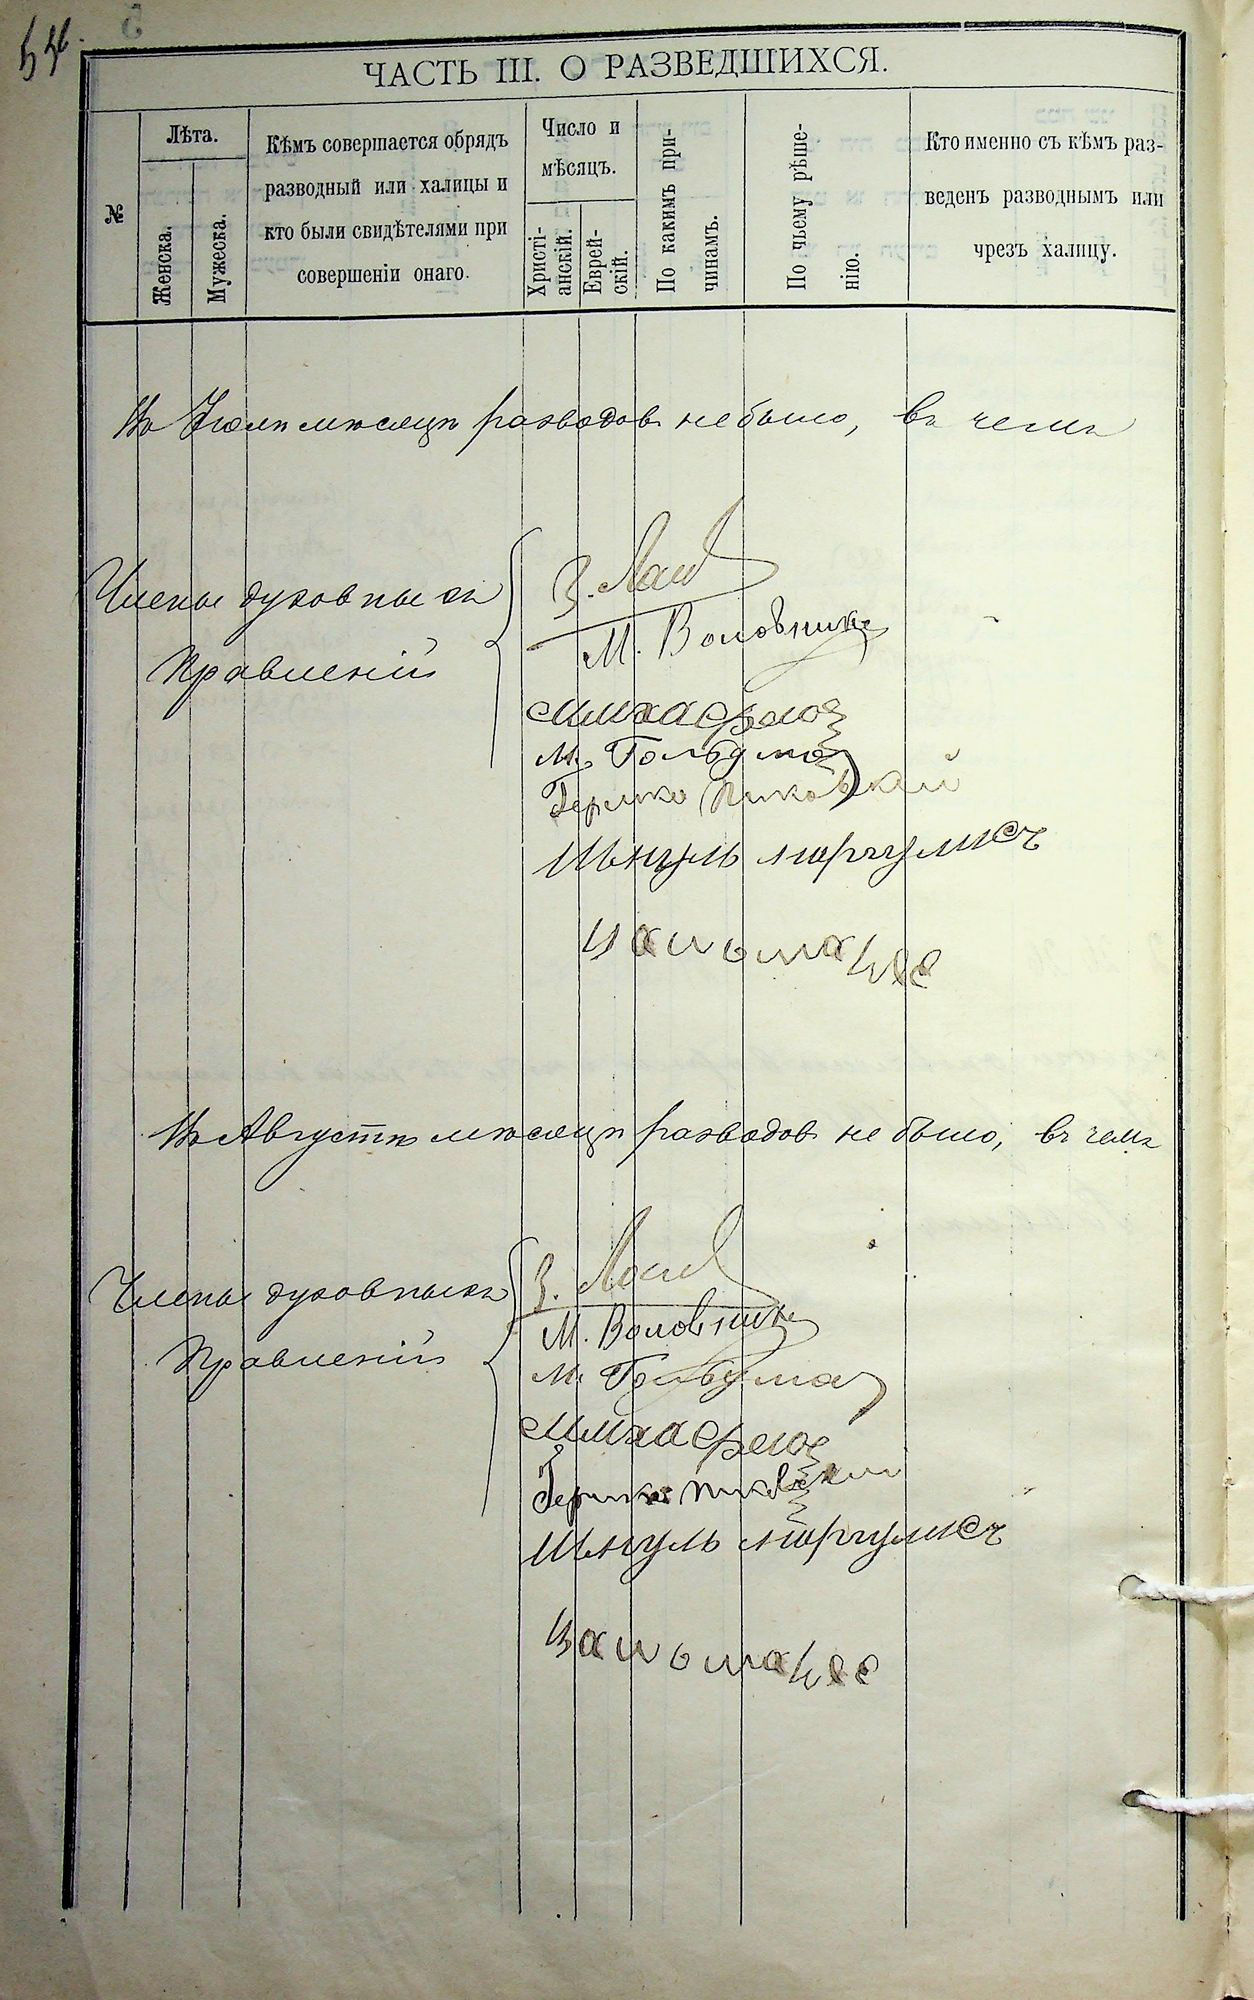 ЧАСТЬ III. О РАЗВЕДШИХСЯ.
№
Лѣта.
Женска.
Мужеска.
Кѣмъ совершается обрядъ
разводный или халицы и
кто были свидѣтелями при
совершеніи онаго.
Число и
мѣсяцъ.
Христі-
анскій.
Еврей-
скій.
По какимъ при-
чинамъ.
По чьему рѣше-
нію.
Кто именно съ кѣмъ раз-
веденъ разводнымъ или
чрезъ халицу.
Въ Іюлѣ мѣсяцѣ разводовъ не было, въ чемъ
Члены духовныхъ
Правленій
М. Воловникъ
М. Гольдма
Шмуль маргулисъ
Въ Августѣ мѣсяцѣ разводовъ не было, въ чемъ
Члены духовныхъ
Правленій
М. Воловникъ
М. Гольдма
Шмуль маргулисъ